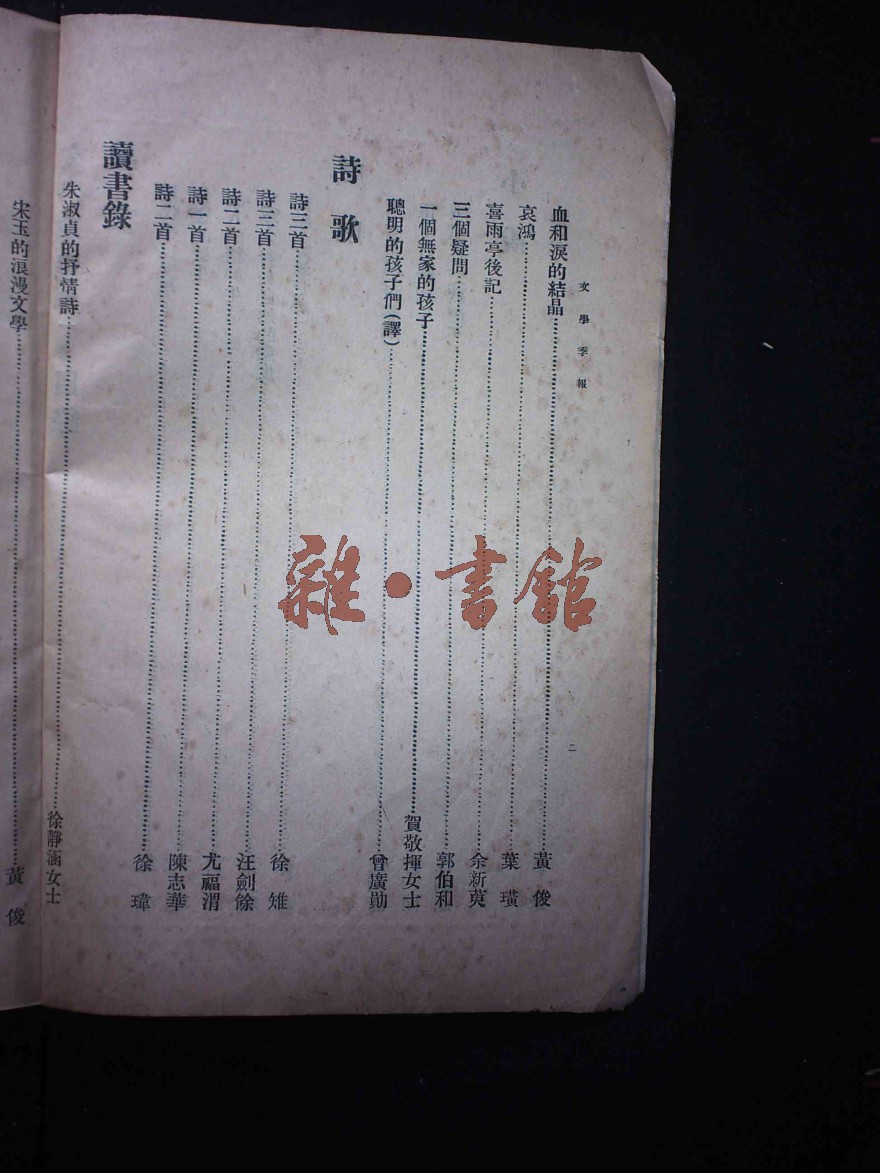 文學季報
二
血和淚的結晶……黃俊
哀鴻……葉璜
喜雨亭後記……余新萸
三個疑問……郭伯和
一個無家的孩子……賀敬揮女士
聰明的孩子們(譯)……曾廣勛
詩歌
詩三首……徐雉
詩三首……汪劍餘
詩二首……尤福渭
詩一首……陳志華
詩二首……徐瑋
讀書錄
朱淑貞的抒情詩……徐靜涵女士
宋玉的浪漫文學……黃俊
雜·書館